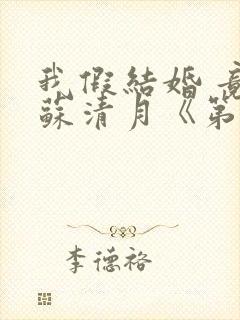 我假結婚
蘇清月《第
李德裕